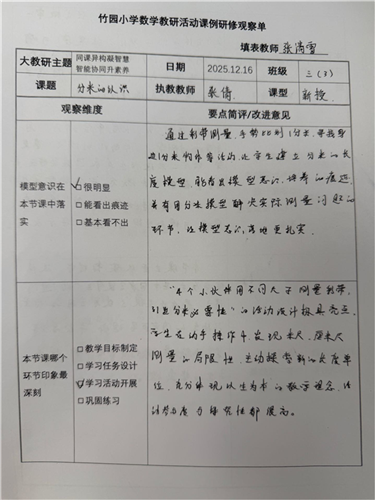 竹园小学数学教研活动课例研修观察单
填表教师
大教研主题 同课异构凝智慧 智能协同升素养 日期 2025.12.16 班级 三(3)
课题 分米的认识 执教教师 课型 新授
观察维度 要点简评/改进意见
模型意识在本节课中落实
☑很明显
□能看出痕迹
□基本看不出
通过彩带测量、手势
1分米物体等活动,让学生建立分米的长
度模型,能看出模型意识培养的痕迹,
用分米模型解决实际测量问题的
环节,让模型意识落地更扎实.
本节课哪个环节印象最深刻
□教学目标制定
□学习任务设计
☑学习活动开展
□巩固练习
"4个小伙伴用不同尺子测量彩带,
引出分米必要性"的活动设计极具亮点,
学生在动手操作中发现米尺、厘米尺
测量的局限性,主动探索新的长度单
位,充分体现以生为本的教学理念,活